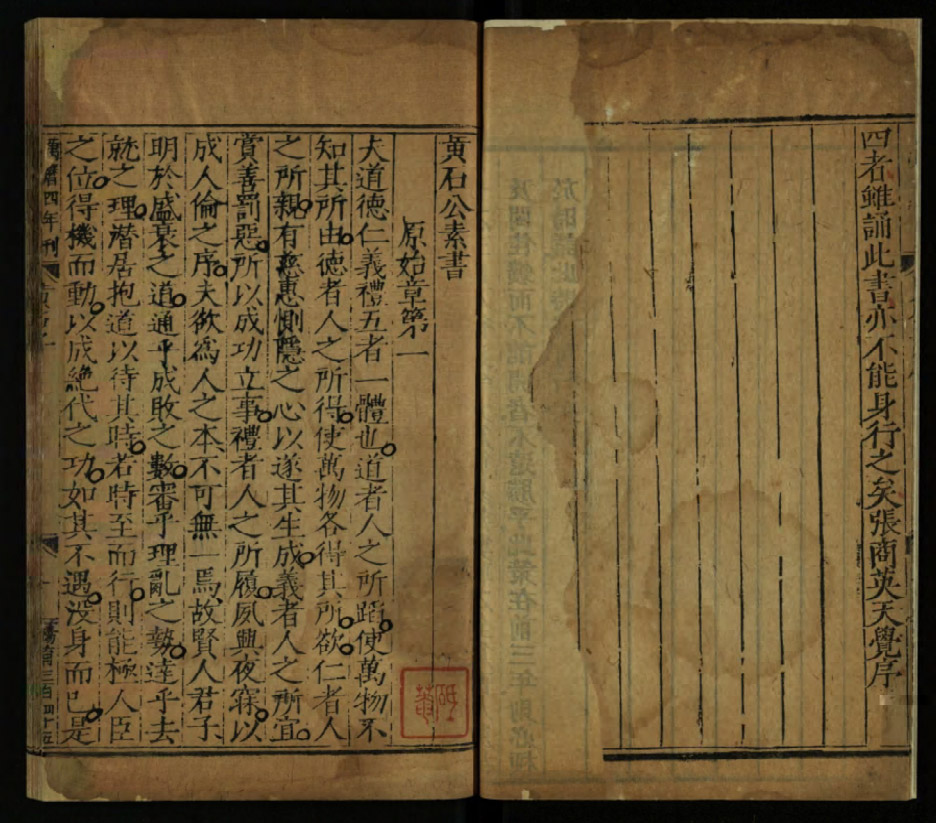 四者雖誦此書亦不能身行之矣張商英天覺序
黄石公素書
原始章第一
夫道德仁義禮五者一體也道者人之所蹈使萬物不
知其所由德者人之所得使萬物各得其所欲仁者人
之所親有慈惠惻隱之心以遂其生成義者人之所宜
賞善罰惡所以成功立事禮者人之所履夙興夜寐以
成人倫之序夫欲爲人之本不可無一焉故賢人君子
明於盛衰之道通乎成敗之數審乎理亂之勢達乎去
就之理潜居抱道以待其時若時至而行則能極人臣
之位得機而動以成絶代之功如其不遇没身而已是
四年刊
三百四十五